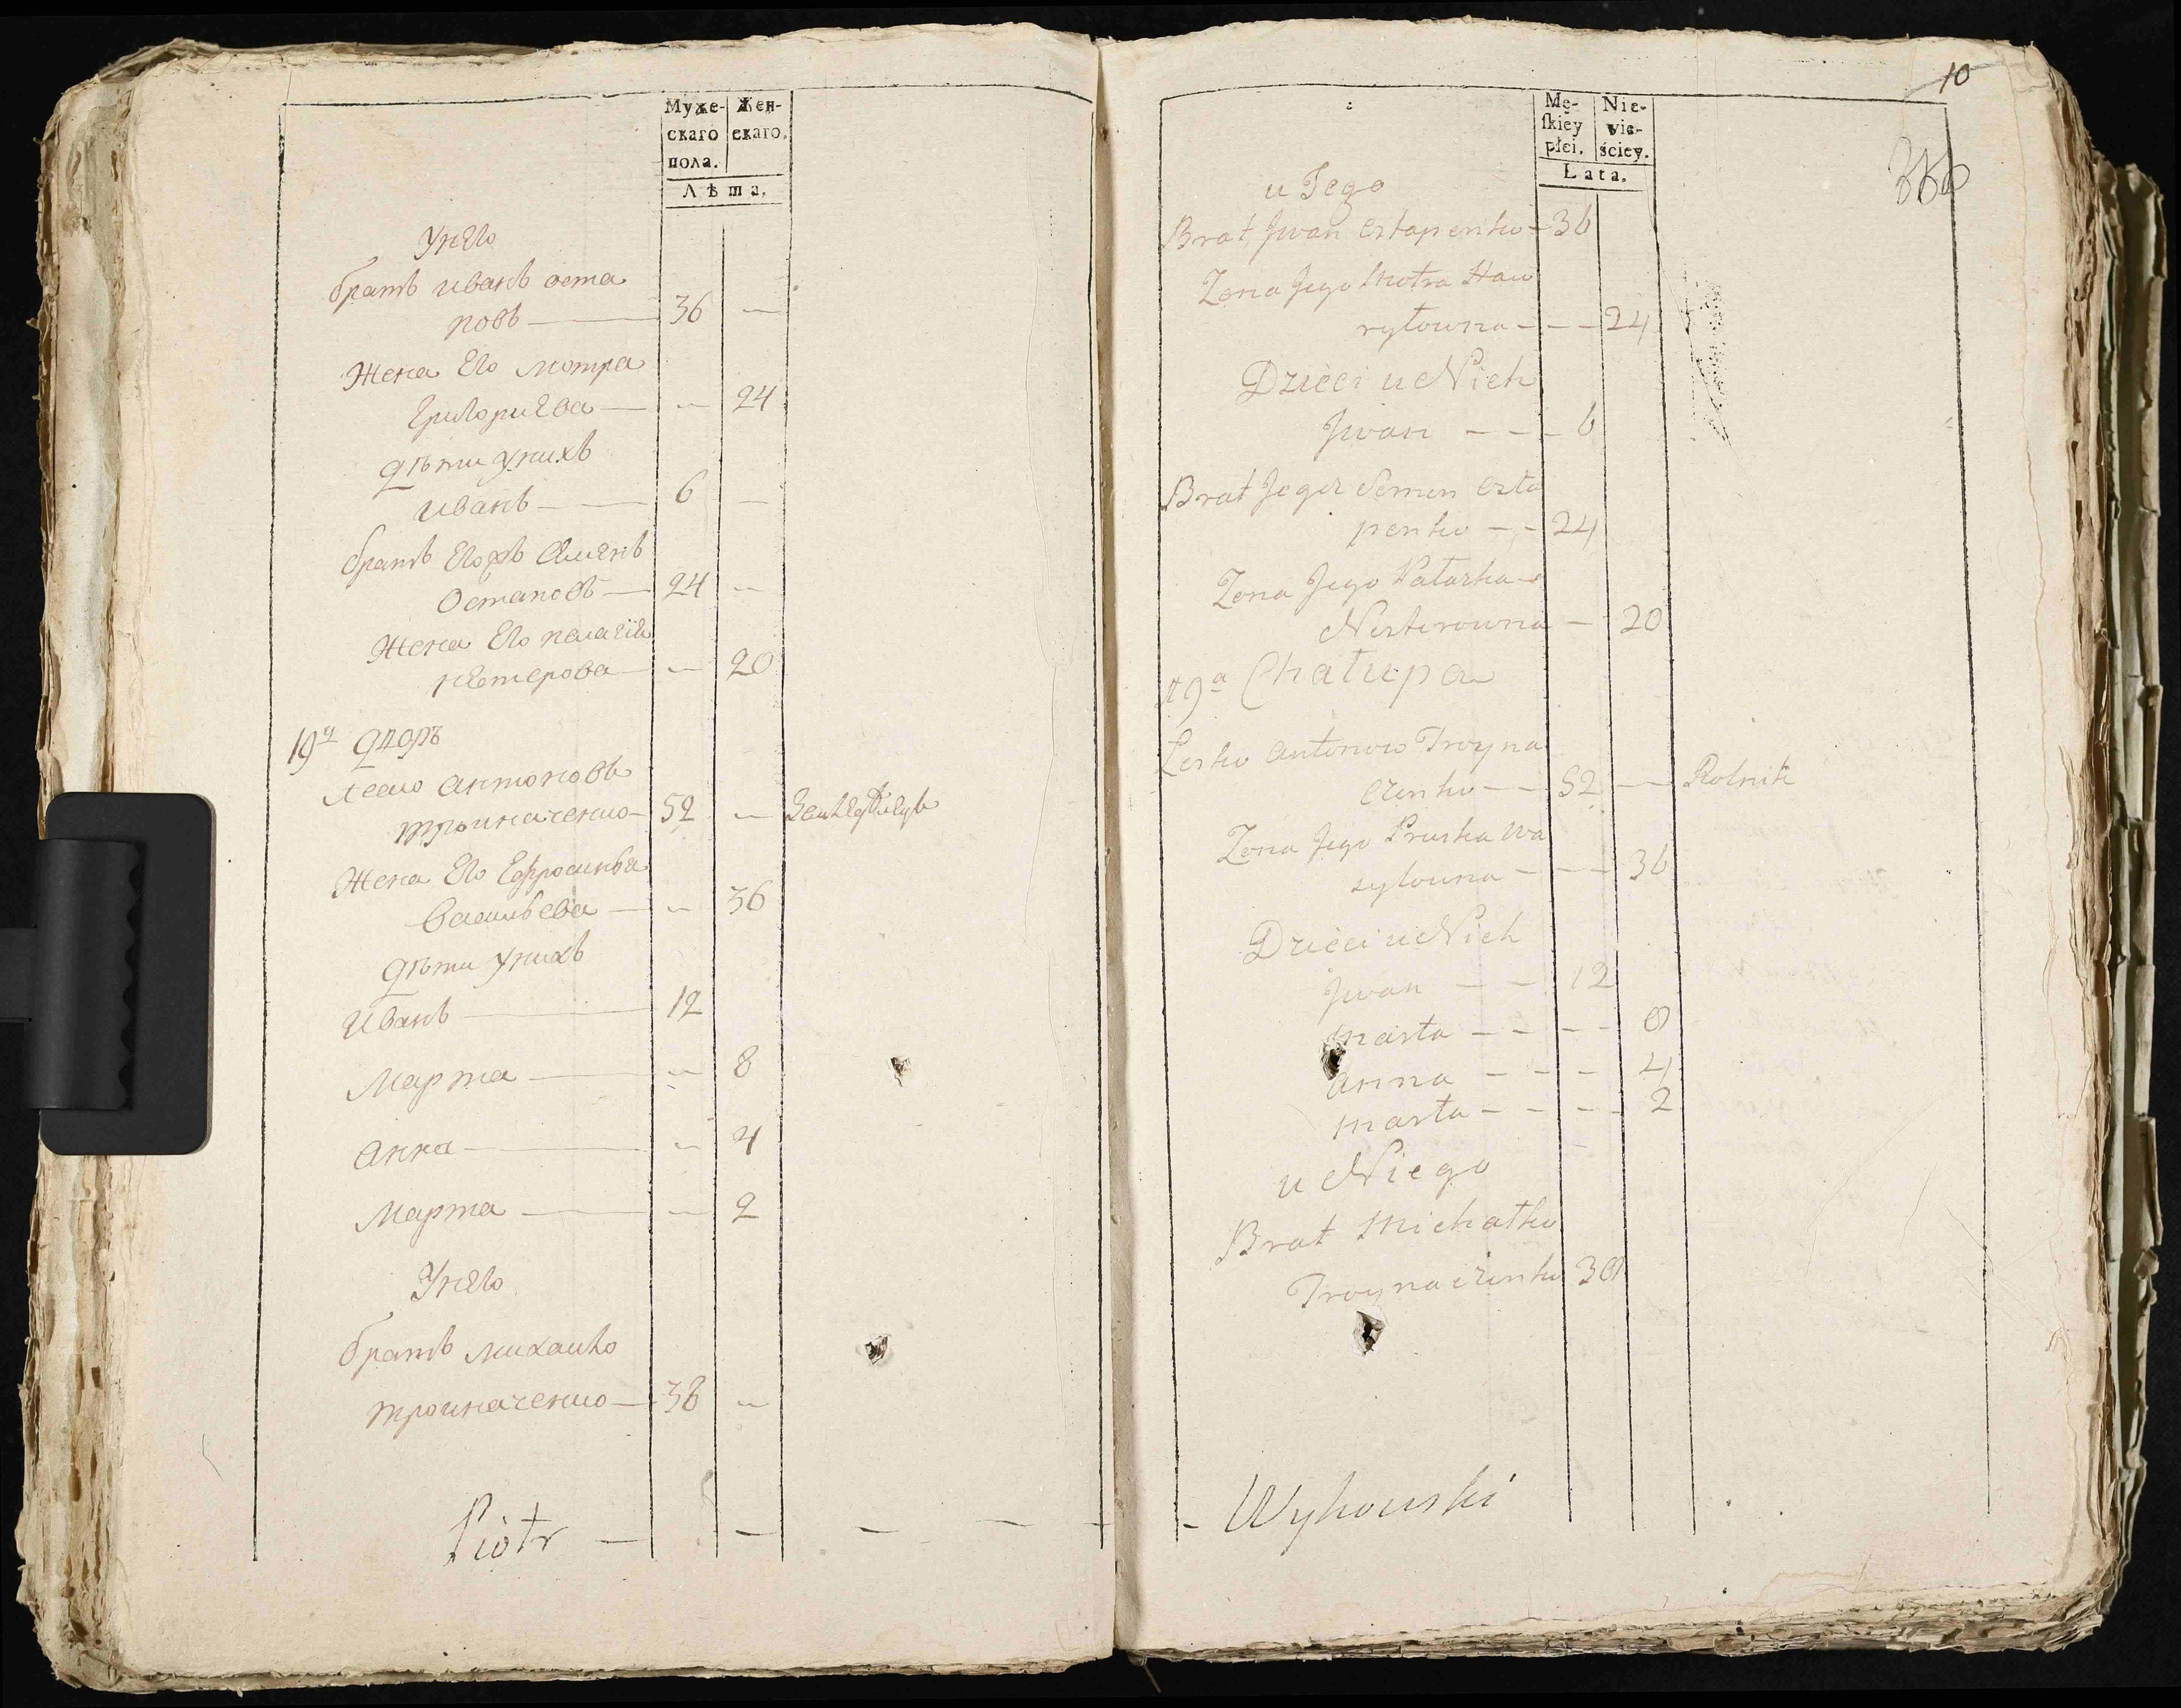 Муже-
скаго
пола.
Жен-
скаго.
Лѣта.
унего
братъ иванъ оста
повъ — 36 —
Жена Его мотра
григориева — — 24
дѣти унихъ
иванъ — 6 —
братъ Егожъ Семенъ
остаповъ — 24 —
Жена Его пелагія
нестерова — — 20
19й дворъ
леско антоновъ
тройначенко — 52 —
Жена Его Ефросинья
васильева — — 36
дѣти унихъ
иванъ — 12
Марта — — 8
анна — — 4
Марта — — 2
унего
братъ михаилко
тройначенко — 38 —
Piotr — — — —
10
Mę-
ſkiey
płci.
Nie-
wie-
ściey.
Lata.
u Jego
Brat Jwan Ostapenko — 36
Zona Jego Motra Haw
ryłowna — — — 24
Dzieci u Nich
Jwan — — — 6
Brat Jegoz Semen Osta
penko — — 24
Zona Jego Pałazka
Nesterowna — 20
19a Chałupa
Lesko Antonow Troyna
czenko — — 52 — Rolnik
Zona Jego Pruska Wa
sylowna — — — 36
Dzieci u Nich
Jwan — — 12
Marta — — — — 8
Anna — — — 4
Marta — — — — 2
u Niego
Brat Michałko
Troynaczenko 38
- Wyhowski